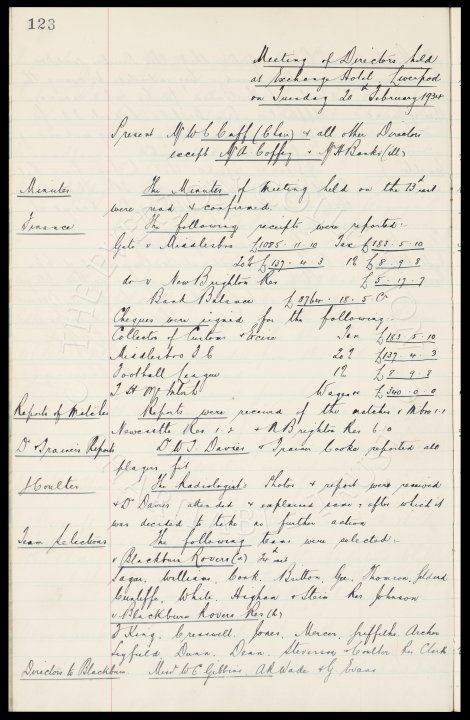 123
Meeting of Directors held
at Exchange Hotel, Liverpool
on Tuesday 20th February 1934
Present Mr W C Cuff (Chair) & all other Directors
except Mr A Coffey & Mr H Banks (ill)
Minutes The Minutes of Meeting held on the 13th inst
were read & confirmed.
Finance The following receipts were reported:-
Gate v Middlesbro £1085. 11. 10 Tax £183. 5. 10
20% £137. 4. 3 1% £8. 9. 8
do v New Brighton Res £5. 17. 7
Bank Balance £8764. 18. 5 Cr
Cheques were signed for the following:-
Collector of Customs & Excise Tax £183. 5. 10
Middlesbro F C 20% £137. 4. 3
Football League 1% £8. 9. 8
T H McIntosh Wages £340. 0. 0
Reports of Matches Reports were received of the matches v Mbro 1.1
Newcastle Res 1. 2 & N Brighton Res 6. 0
Dr & Trainers Reports Dr W J Davies & Trainer Cooke reported all
players fit
Coulter The Radiologists Photos & report were received
& Dr Davies attended & explained same & after which it
was decided to take no further action
Team Selections The following teams were selected:-
v Blackburn Rovers (a) 24th inst
Sagar, Williams, Cook, Britton, Gee, Thomson, Geldard
Cunliffe, White, Higham & Stein Res Johnson
v Blackburn Rovers Res (h)
F King, Cresswell, Jones, Mercer, Griffiths, Archer
Leyfield, Dunn, Dean, Stevenson & Coulter Res Clark
Directors to Blackburn Messrs W C Gibbins A R Wade & G Evans